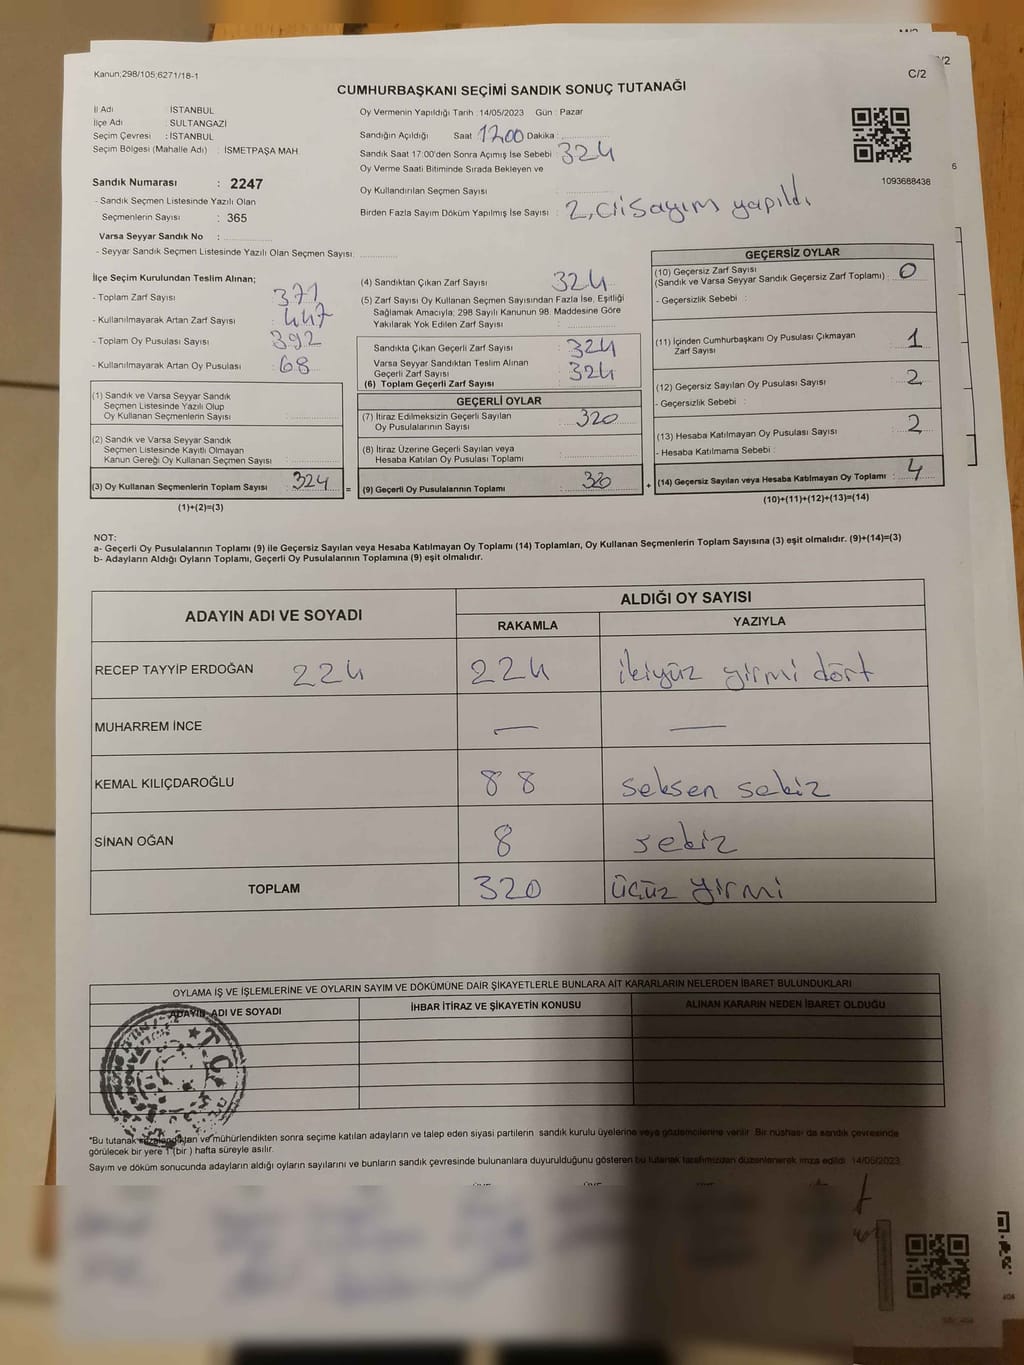 Kanun;298/105;6271/18-1
C/2
CUMHURBAŞKANI SEÇİMİ SANDIK SONUÇ TUTANAĞI
İl Adı : İSTANBUL
İlçe Adı : SULTANGAZİ
Seçim Çevresi : İSTANBUL
Seçim Bölgesi (Mahalle Adı) : İSMETPAŞA MAH.
Sandık Numarası : 2247
- Sandık Seçmen Listesinde Yazılı Olan
Seçmenlerin Sayısı : 365
Varsa Seyyar Sandık No :
- Seyyar Sandık Seçmen Listesinde Yazılı Olan Seçmen Sayısı:
Oy Vermenin Yapıldığı Tarih :14/05/2023 Gün : Pazar
Sandığın Açıldığı Saat 1700 Dakika :
Sandık Saat 17:00'den Sonra Açımış İse Sebebi : 324
Oy Verme Saati Bitiminde Sırada Bekleyen ve
Oy Kullandırılan Seçmen Sayısı :
Birden Fazla Sayım Döküm Yapılmış İse Sayısı : 2, sayım yapıldı
1093688438
İlçe Seçim Kurulundan Teslim Alınan;
- Toplam Zarf Sayısı : 371
- Kullanılmayarak Artan Zarf Sayısı : 447
- Toplam Oy Pusulası Sayısı : 392
- Kullanılmayarak Artan Oy Pusulası : 68
(1) Sandık ve Varsa Seyyar Sandık
Seçmen Listesinde Yazılı Olup
Oy Kullanan Seçmenlerin Sayısı :
(2) Sandık ve Varsa Seyyar Sandık
Seçmen Listesinde Kayıtlı Olmayan
Kanun Gereği Oy Kullanan Seçmen Sayısı :
(3) Oy Kullanan Seçmenlerin Toplam Sayısı : 324 =
(1)+(2)=(3)
(4) Sandıktan Çıkan Zarf Sayısı : 324
(5) Zarf Sayısı Oy Kullanan Seçmen Sayısından Fazla İse, Eşitliği
Sağlamak Amacıyla; 298 Sayılı Kanunun 98. Maddesine Göre
Yakılarak Yok Edilen Zarf Sayısı :
Sandıkta Çıkan Geçerli Zarf Sayısı : 324
Varsa Seyyar Sandıktan Teslim Alınan
Geçerli Zarf Sayısı : 324
(6) Toplam Geçerli Zarf Sayısı :
GEÇERLİ OYLAR
(7) İtiraz Edilmeksizin Geçerli Sayılan
Oy Pusulalarının Sayısı : 320
(8) İtiraz Üzerine Geçerli Sayılan veya
Hesaba Katılan Oy Pusulası Toplamı :
(9) Geçerli Oy Pusulalarının Toplamı : 320 +
GEÇERSİZ OYLAR
(10) Geçersiz Zarf Sayısı
(Sandık ve Varsa Seyyar Sandık Geçersiz Zarf Toplamı) : 0
- Geçersizlik Sebebi :
(11) İçinden Cumhurbaşkanı Oy Pusulası Çıkmayan
Zarf Sayısı : 1
(12) Geçersiz Sayılan Oy Pusulası Sayısı : 2
- Geçersizlik Sebebi :
(13) Hesaba Katılmayan Oy Pusulası Sayısı : 2
- Hesaba Katılmama Sebebi :
(14) Geçersiz Sayılan veya Hesaba Katılmayan Oy Toplamı : 4
(10)+(11)+(12)+(13)=(14)
NOT:
a- Geçerli Oy Pusulalarının Toplamı (9) ile Geçersiz Sayılan veya Hesaba Katılmayan Oy Toplamı (14) Toplamları, Oy Kullanan Seçmenlerin Toplam Sayısına (3) eşit olmalıdır. (9)+(14)=(3)
b- Adayların Aldığı Oyların Toplamı, Geçerli Oy Pusulalarının Toplamına (9) eşit olmalıdır.
ADAYIN ADI VE SOYADI ALDIĞI OY SAYISI
RAKAMLA YAZIYLA
RECEP TAYYİP ERDOĞAN 224 224 ikiyüz yirmi dört
MUHARREM İNCE — —
KEMAL KILIÇDAROĞLU 88 seksen sekiz
SİNAN OĞAN 8 sekiz
TOPLAM 320 üçüz yirmi
OYLAMA İŞ VE İŞLEMLERİNE VE OYLARIN SAYIM VE DÖKÜMÜNE DAİR ŞİKAYETLERLE BUNLARA AİT KARARLARIN NELERDEN İBARET BULUNDUKLARI
ADAYIN ADI VE SOYADI İHBAR İTİRAZ VE ŞİKAYETİN KONUSU ALINAN KARARIN NEDEN İBARET OLDUĞU
T.C.
*Bu tutanak imzalandıktan ve mühürlendikten sonra seçime katılan adayların ve talep eden siyasi partilerin sandık kurulu üyelerine veya gözlemcilerine verilir. Bir nüshası da sandık çevresinde
görülecek bir yere 1 (bir ) hafta süreyle asılır.
Sayım ve döküm sonucunda adayların aldığı oyların sayılarını ve bunların sandık çevresinde bulunanlara duyurulduğunu gösteren bu tutanak tarafımızdan düzenlenerek imza edildi. 14/05/2023